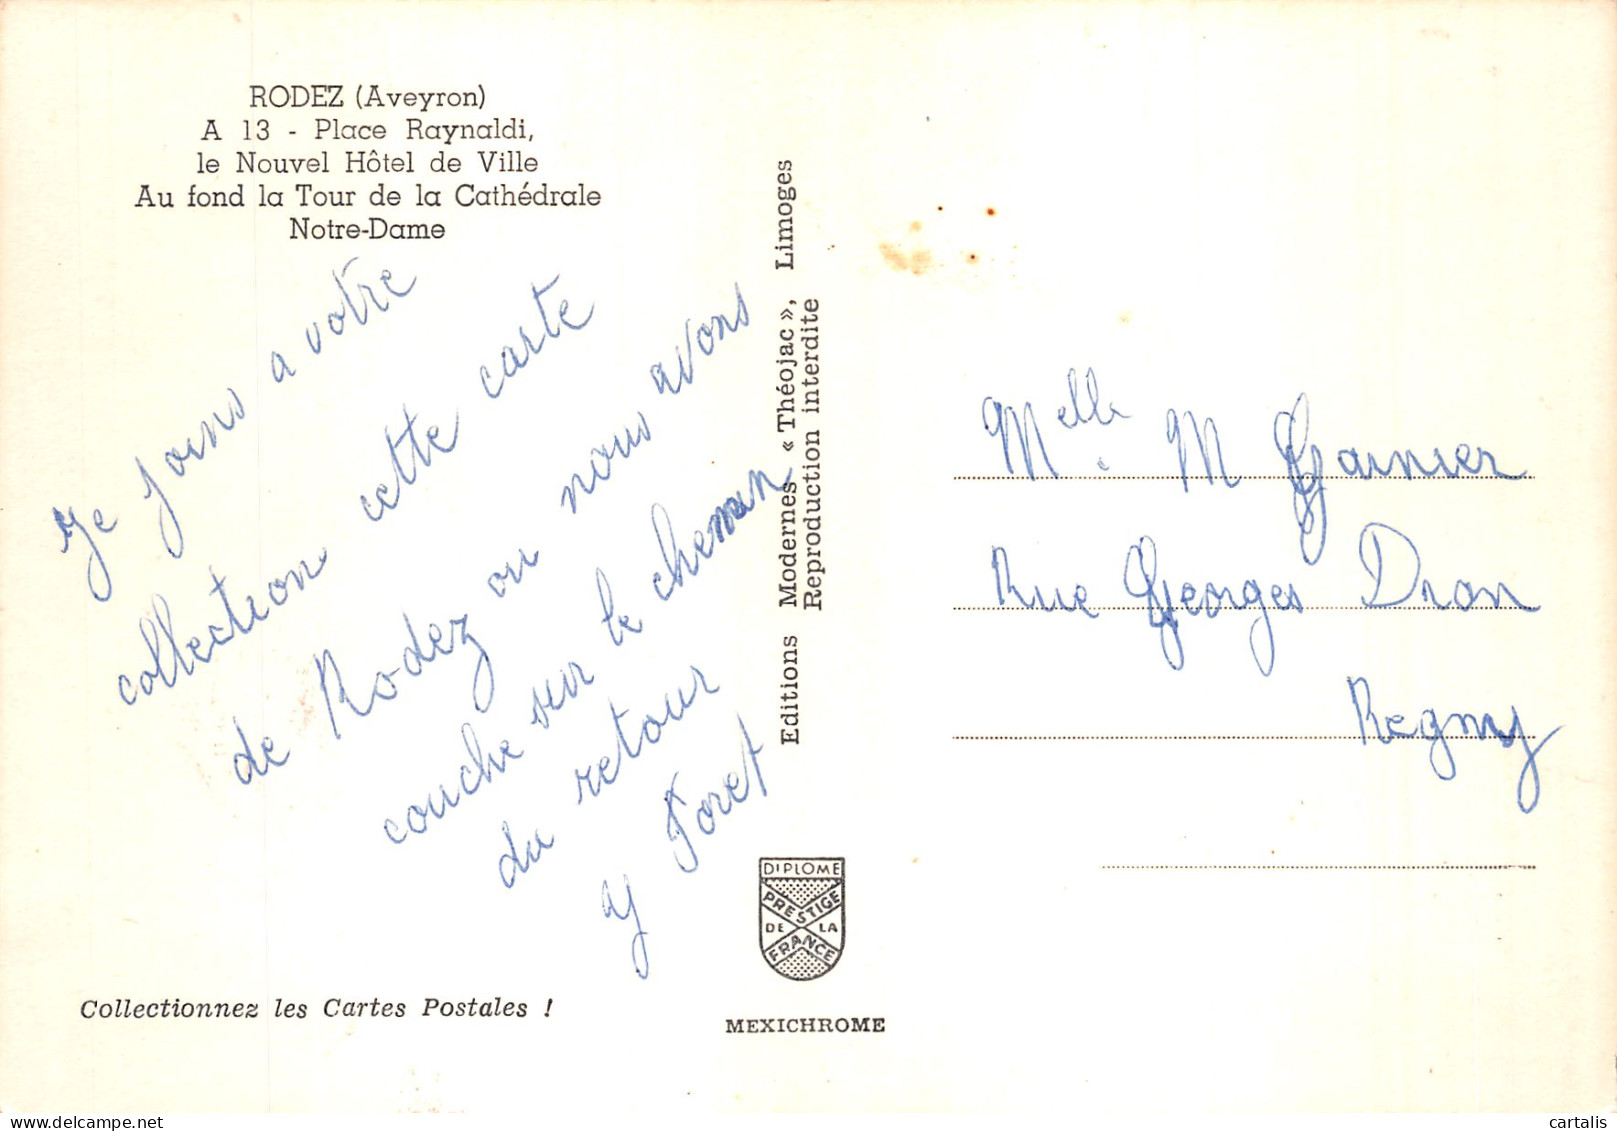 RODEZ (Aveyron)
A 13 - Place Raynaldi,
le Nouvel Hôtel de Ville
Au fond la Tour de la Cathédrale
Notre-Dame
Je joins a votre
collection cette carte
de Rodez ou nous avons
couche sur le chemin
du retour
Y Foret
Collectionnez les Cartes Postales !
Editions Modernes « Théojac », Limoges
Reproduction interdite
DIPLOME
PRESTIGE
DE LA
FRANCE
MEXICHROME
Melle M Garnier
Rue Georges Dron
Regny
cartalis